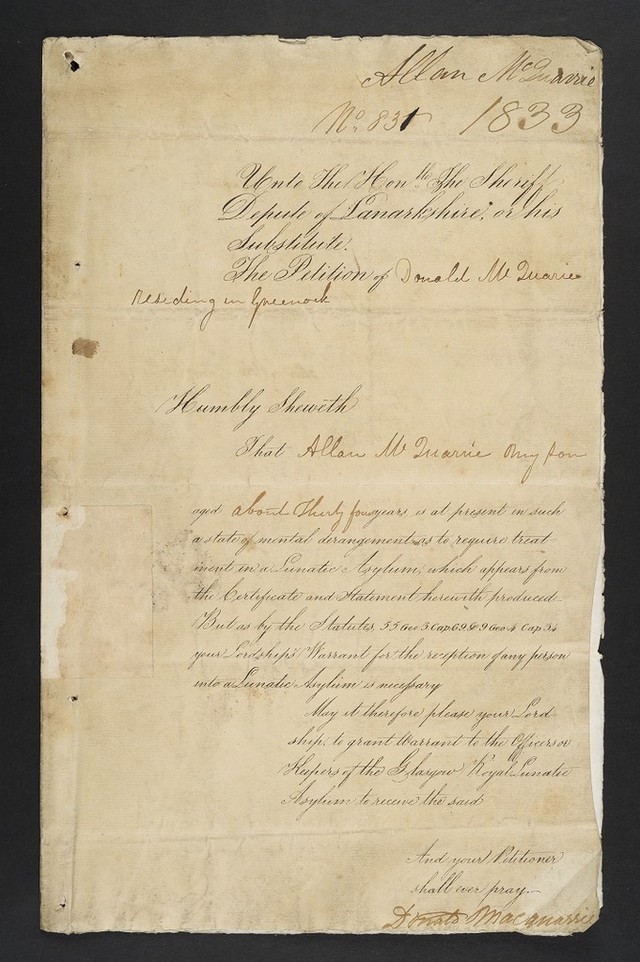 Allan McQuarrie
No. 831 1833
Unto The Honble The Sheriff
Depute of Lanarkshire, or his
Substitute.
The Petition of Donald McQuarie
residing in Greenock
Humbly Sheweth
That Allan McQuarrie my son
aged about Thirty four years is at present in such
a state of mental derangement as to require treat
ment in a Lunatic Asylum, which appears from
the Certificate and Statement herewith produced
But as by the Statutes, 55 Geo 3. Cap. 69. & 9 Geo 4 Cap 34
your Lordship's Warrant for the reception of any person
into a Lunatic Asylum is necessary
May it therefore please your Lord
ship, to grant Warrant to the Officers or
Keepers of the Glasgow Royal Lunatic
Asylum to receive the said
And your Petitioner
shall ever pray.—
Donald Macquarrie